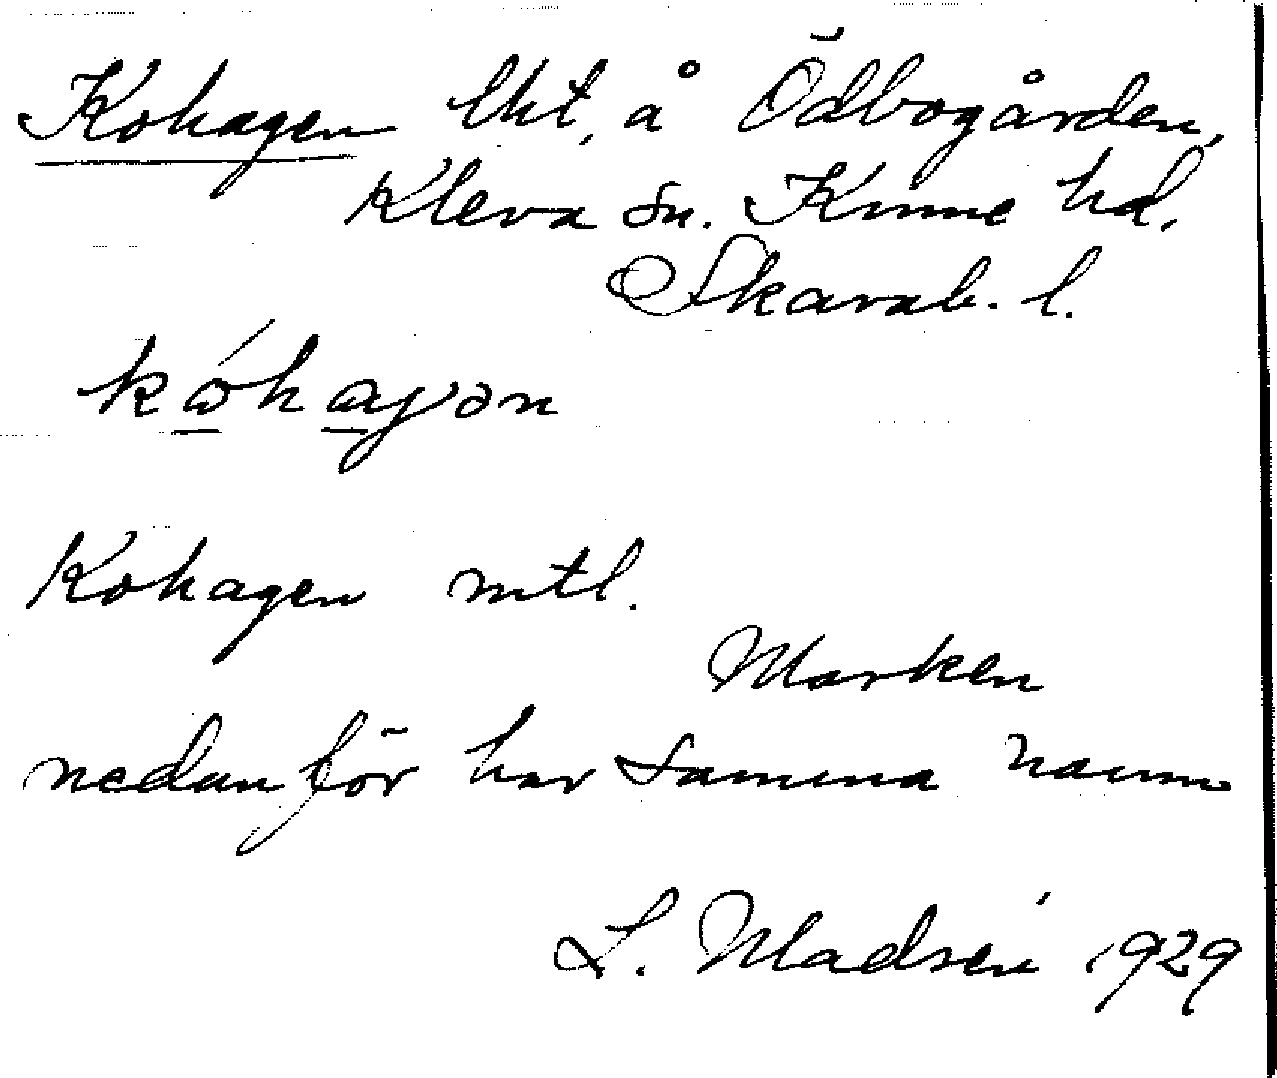 Kohagen lht, å Ödbogården,
Kleva sn. Kinne hd.
Skarab. l.
Kohagen mtl.
Marken
nedanför har samma namn
L. Madsén 1929